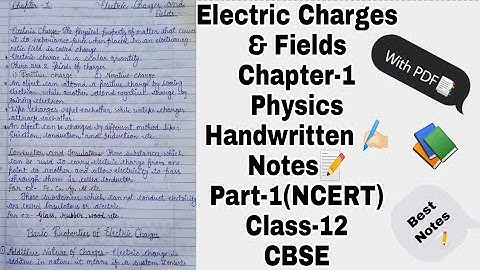 Chapter 1
Electric Charges And
Fields
Electric Charge - The physical property of matter that causes
it to experience force when placed in an electromag
netic field is called charge.
Electric charge is a scalar quantity.
There are 2 kinds of charges
1) Positive charge 2) Negative charge
An object can attend a positive charge by losing
electron, while another attend negative charge by
gaining electron.
Like charges repel each other while unlike charges
attract each other.
An object can be charged by different method like:
friction, conduction, and induction etc.
Conductors and Insulators - Those substances which
can be used to carry electric charge from one
point to another and allow electricity to pass
through them is called conductor.
for ex - Fe, Cu, Ag, Al etc.
Those substances which can not conduct electricity
are called Insulators or dielectric.
for ex - Glass, rubber, wood etc.
Basic Properties of Electric Charge
Additive Nature of Charges - Electric charge is
additive in nature it means if a system consists
Electric Charges
& Fields
Chapter-1
Physics
Handwritten
Notes
Part-1(NCERT)
Class-12
CBSE
With PDF
Best
Notes